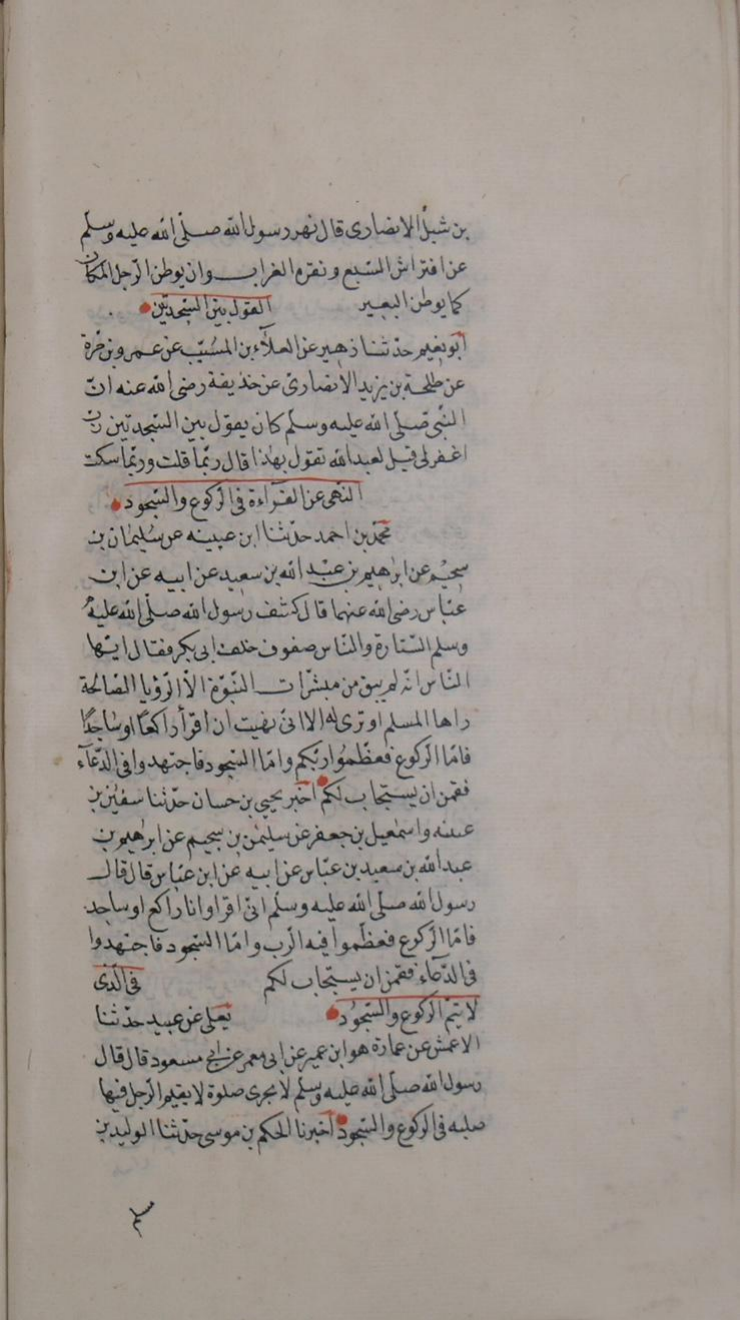 بن شبل الانصاری قال نهی رسول الله صلّی الله علیه وسلّم
عن افتراش السّبع ونقرة الغراب وان یوطن الرّجل المکان
کما یوطن البعیر القول بین السّجدتین
ابو نعیم حدّثنا زهیر عن العلآء بن المسیّب عن عمرو بن مرّة
عن طلحة بن یزید الانصاریّ عن حذیفة رضی الله عنه انّ
النّبی صلّی الله علیه وسلّم کان یقول بین السّجدتین ربّ
اغفرلی قیل لعبد الله تقول بهذا قال ربّما قلت وربّما سکت
النّهی عن القرآءة فی الرّکوع والسّجود
محمّد بن احمد حدّثنا ابن عیینه عن سلیمان بن
سحیم عن ابرٰهیم بن عبد الله بن سعید عن ابیه عن ابن
عبّاس رضی الله عنهما قال کشف رسول الله صلّی الله علیه
وسلم السّتارة والنّاس صفوف خلف ابی بکر فقال ایّها
النّاس انّه لم یبق من مبشّرات النّبوّة الاّ الرّؤیا الصّالحة
راها المسلم او تری له الا انّی نهیت ان اقرأ راکعًا او ساجدًا
فامّا الرّکوع فعظّموا ربّکم وامّا السّجود فاجتهدوا فی الدّعآء
فقمن ان یستجاب لکم اخبر یحیی بن حسان حدّثنا سفیٰن بن
عیینه واسمٰعیل بن جعفر عن سلیمٰن بن سحیم عن ابرٰهیم بن
عبد الله بن سعید بن عبّاس عن ابیه عن ابن عبّاس قال قال
رسول الله صلّی الله علیه وسلّم انّی اقرا وانا راکع او ساجد
فامّا الرّکوع فعظّموا فیه الرّب وامّا السّجود فاجتهدوا
فی الدّعآء فقمن ان یستجاب لکم فی الّذی
لا یتمّ الرّکوع والسّجود یعلی عن عبید حدّثنا
الاعمش عن عمارة هو ابن عمیر عن ابی معمر عن ابی مسعود قال قال
رسول الله صلّی الله علیه وسلّم لا یجری صلوة لا یقیم الرّجل فیها
صلبه فی الرکوع والسّجود اخبرنا الحکم بن موسی حدّثنا الولید بن
مسلم